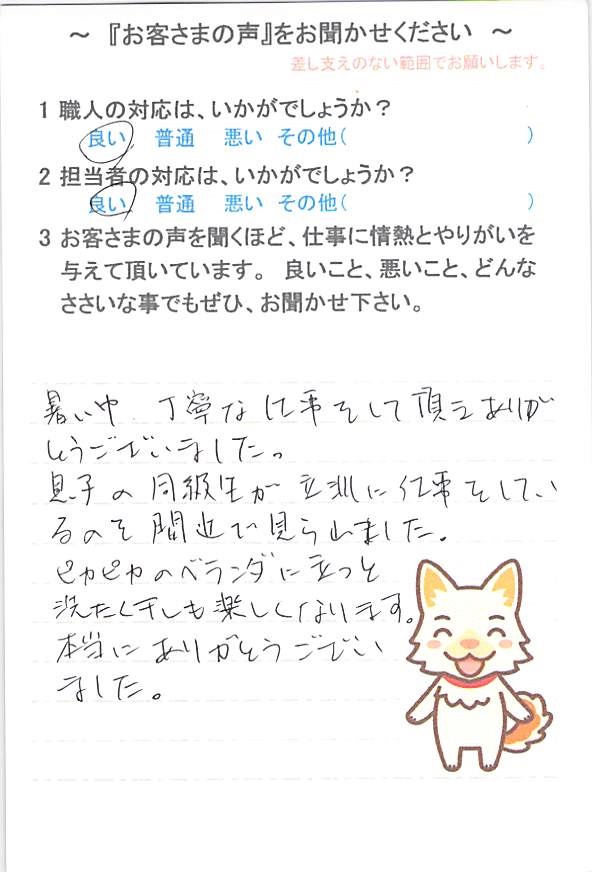 ～ 『お客さまの声』をお聞かせください ～
差し支えのない範囲でお願いします。
1 職人の対応は、いかがでしょうか？
良い 普通 悪い その他( )
2 担当者の対応は、いかがでしょうか？
良い 普通 悪い その他( )
3 お客さまの声を聞くほど、仕事に情熱とやりがいを
与えて頂いています。 良いこと、悪いこと、どんな
ささいな事でもぜひ、お聞かせ下さい。
暑い中 丁寧な仕事をして頂きありが
とうございました。
息子の同級生が立派に仕事をしてい
るのを間近で見られました。
ピカピカのベランダに立つと
洗たく干しも楽しくなります。
本当にありがとうござい
ました。